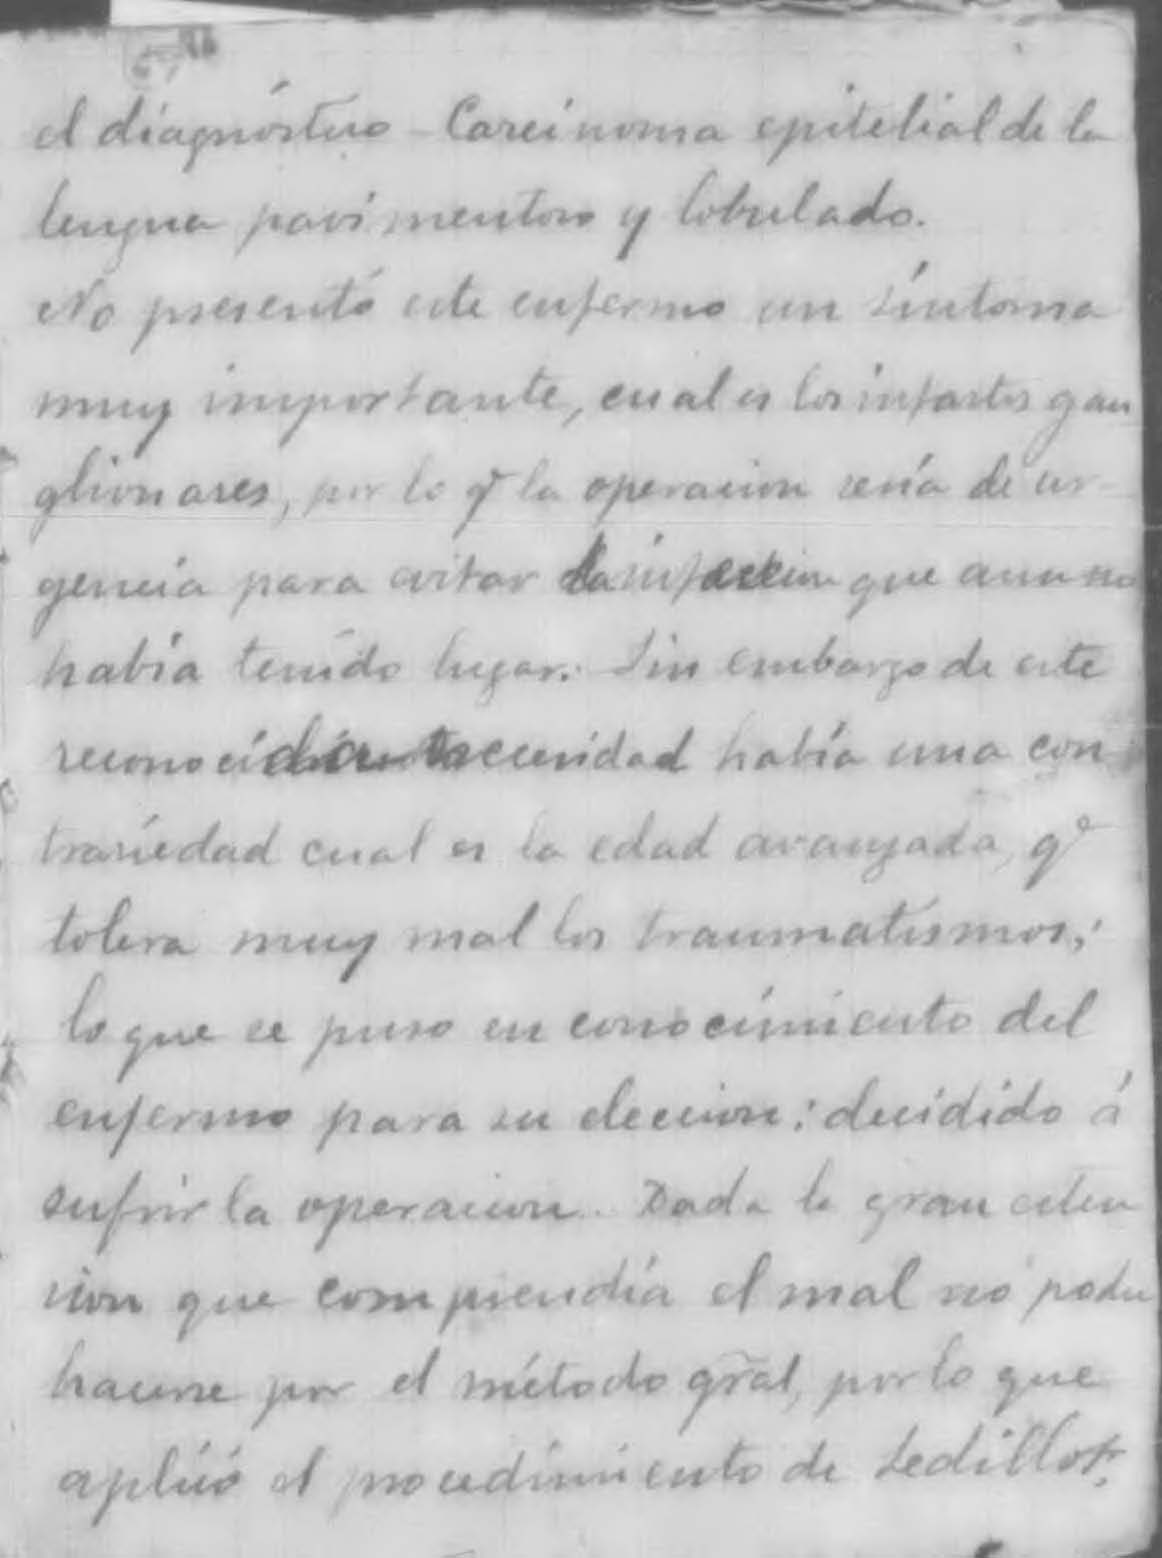 el diagnóstico - Carcinoma epitelial de la
lengua pavimentoso y lobulado.
No presentó este enfermo un síntoma
muy importante, cual es los infartos gan
glionares, por lo q.e la operacion sería de ur-
gencia para evitar la infeccion que aun no
había tenido lugar. Sin embargo de esta
reconocida necesidad había una con-
trariedad cual es la edad avanzada, q.e
tolera muy mal los traumatismos;
lo que se puso en conocimiento del
enfermo para su eleccion: decidido á
sufrir la operacion. Dada la gran esten
sion que comprendía el mal no podía
hacerse por el método gral, por lo que
aplicó el procedimiento de Sedillot.